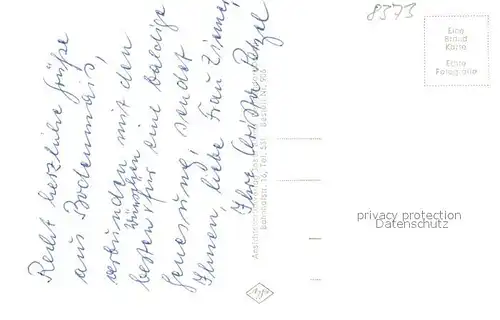 Recht herzliche Grüße
aus Bodenmais,
verbunden mit den
besten Wünschen für eine baldige
Genesung, sendet
Ihnen, liebe Frau
Ihre Christa
8373
Eine
Braud
Karte
Echte
Fotografie
privacy protection
Datenschutz